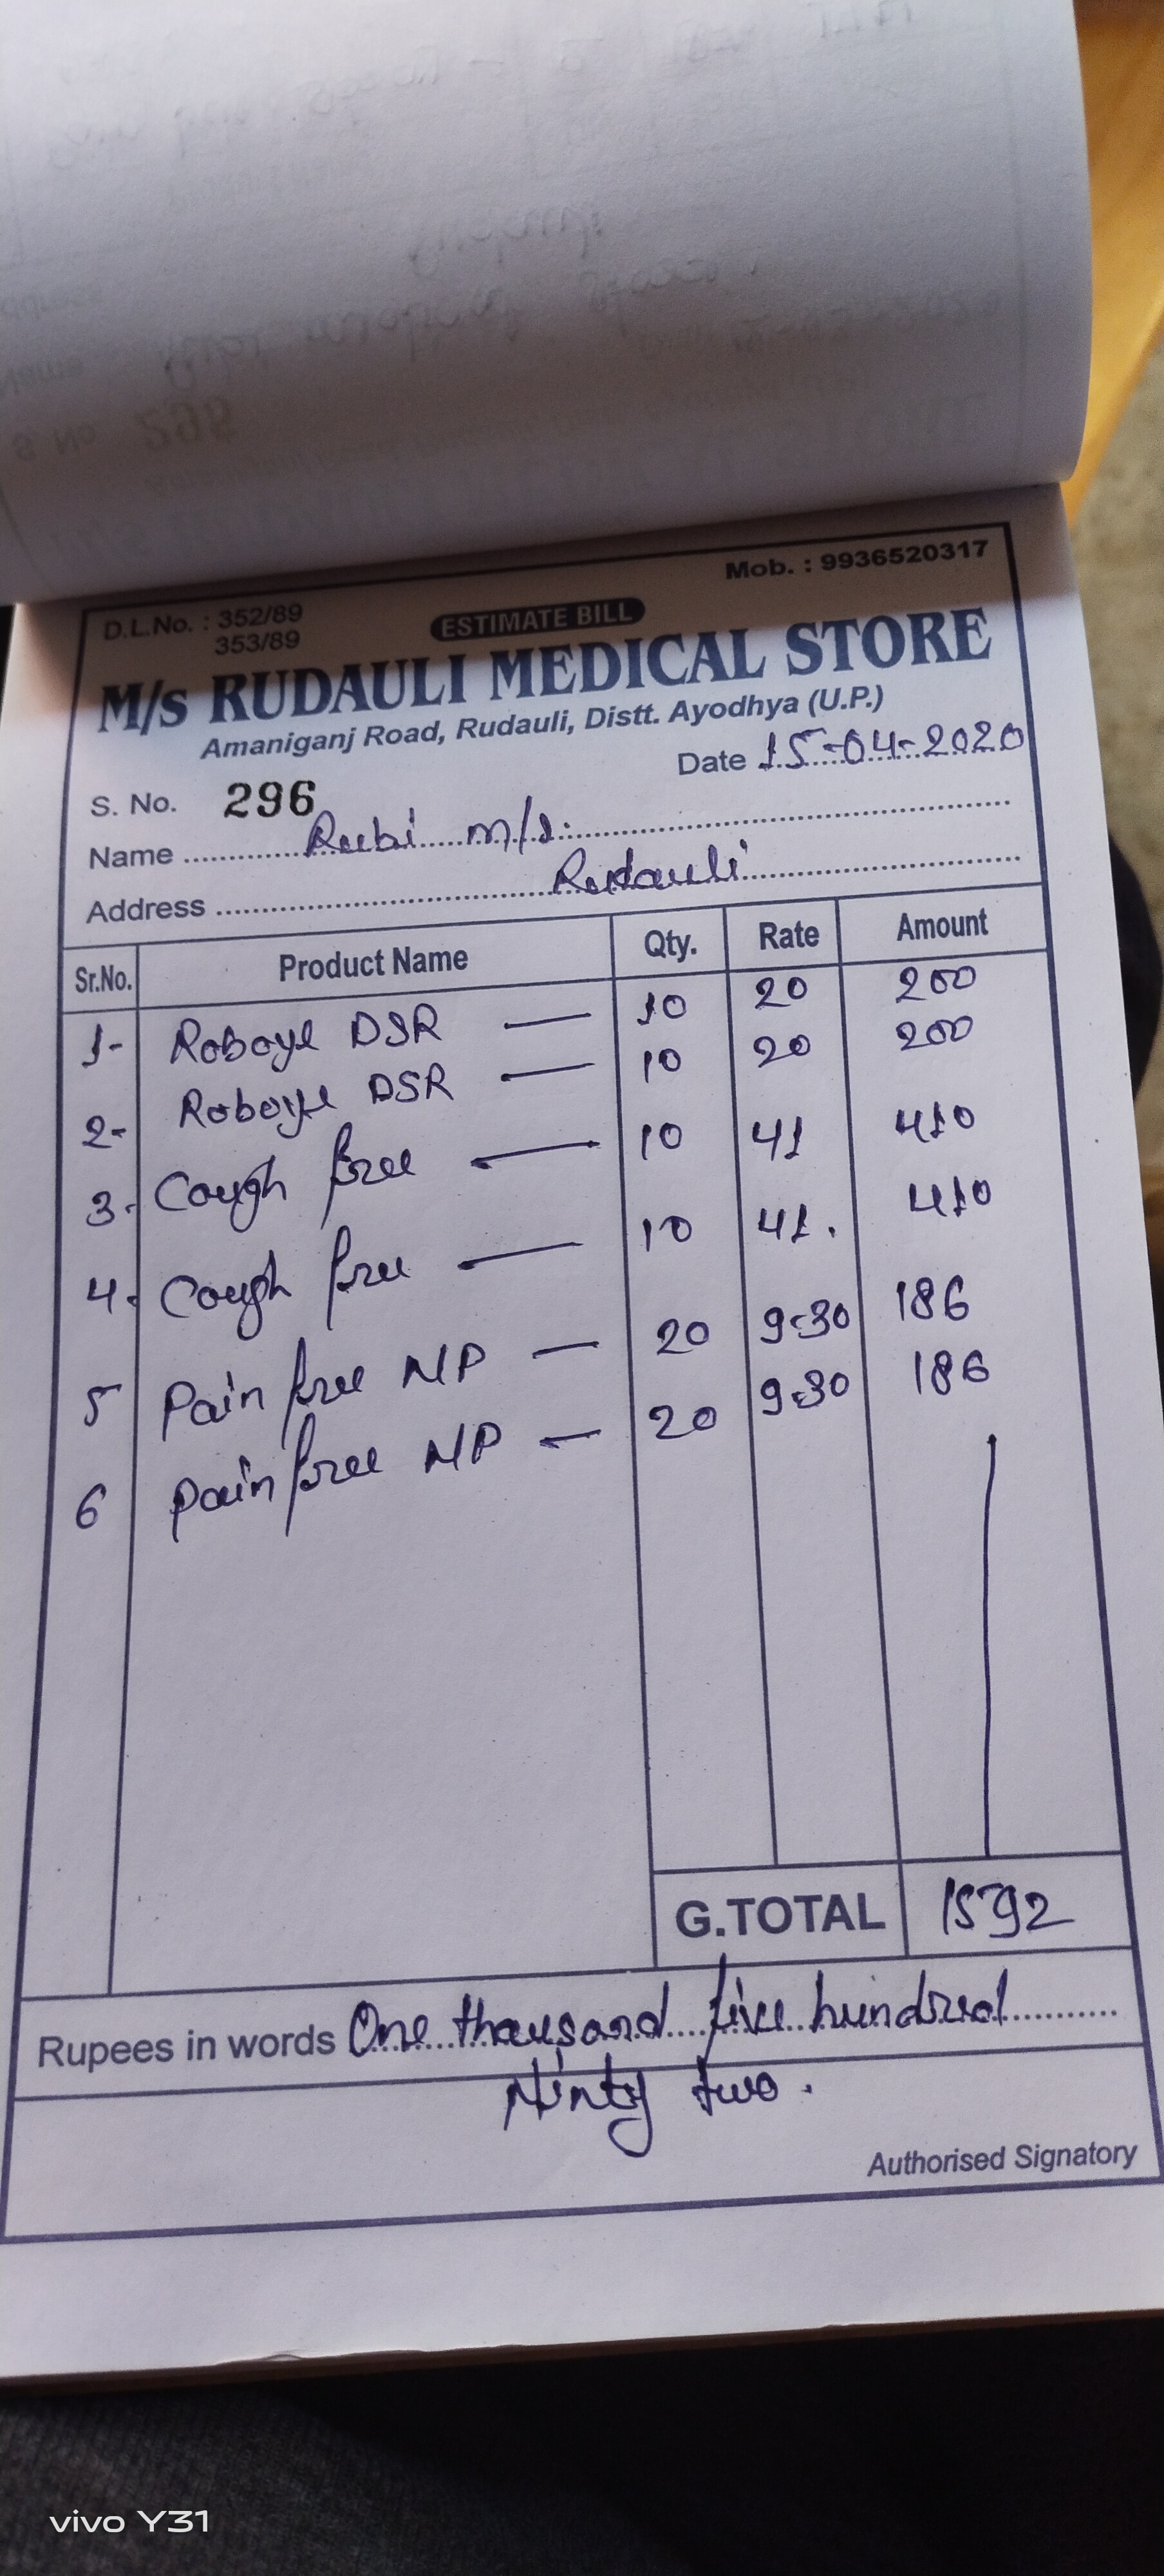 D.L.No. : 352/89
353/89
Mob. : 9936520317
ESTIMATE BILL
M/s RUDAULI MEDICAL STORE
Amaniganj Road, Rudauli, Distt. Ayodhya (U.P.)
Date 15-04-2020
S. No. 296
Name Rubi m/s.
Address Rudauli
Sr.No. Product Name Qty. Rate Amount
1- DSR 10 20 200
2- DSR 10 20 200
3- Cough free 10 41 410
4. Cough free 10 41. 410
5 Pain free NP 20 9.30 186
6 Pain free NP 20 9.30 186
G.TOTAL 1592
Rupees in words One thousand five hundred
Ninty two.
Authorised Signatory
vivo Y31